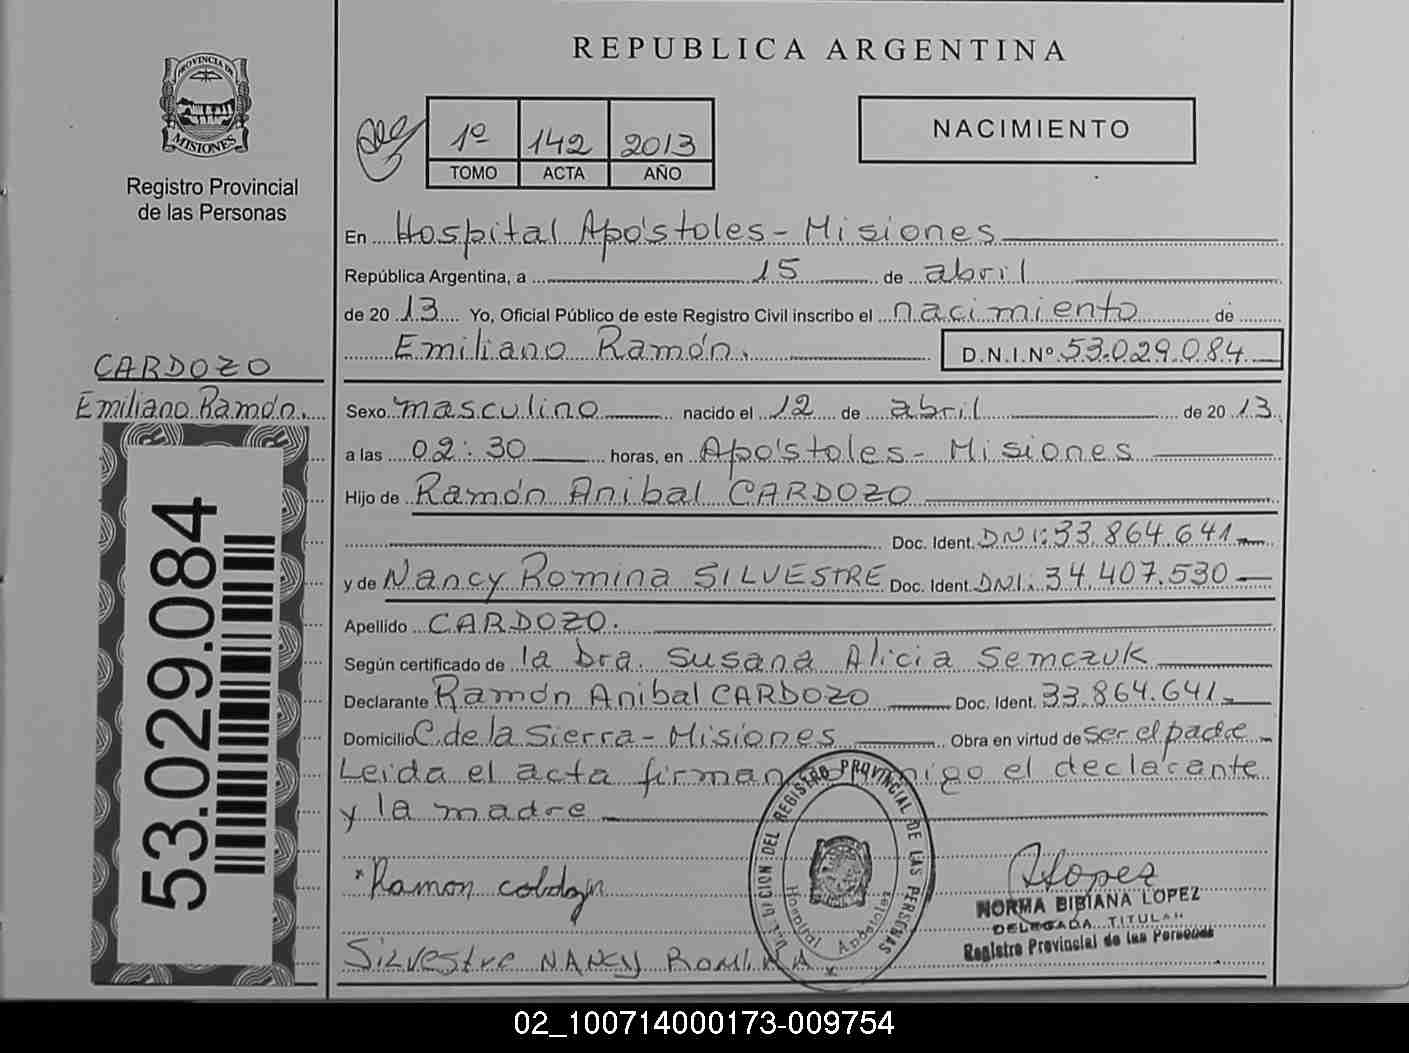 REPUBLICA ARGENTINA
PROVINCIA DE
MISIONES
Registro Provincial
de las Personas
1º 142 2013
TOMO ACTA AÑO
NACIMIENTO
En Hospital Apóstoles - Misiones
República Argentina, a 15 de abril
de 20 13 Yo, Oficial Público de este Registro Civil inscribo el nacimiento de
Emiliano Ramón. D.N.I.Nº 53.029.084
CARDOZO
Emiliano Ramón.
53.029.084
Sexo masculino nacido el 12 de abril de 20 13
a las 02:30 horas, en Apóstoles - Misiones
Hijo de Ramón Anibal CARDOZO
Doc. Ident. DNI: 33.864.641
y de Nancy Romina SILVESTRE Doc. Ident. DNI. 34.407.530
Apellido CARDOZO.
Según certificado de la Dra. Susana Alicia Semczuk
Declarante Ramón Anibal CARDOZO Doc. Ident. 33.864.641
Domicilio C. de la Sierra - Misiones Obra en virtud de ser el padre
Leida el acta firman conmigo el declarante
y la madre
REGISTRO PROVINCIAL DE LAS PERSONAS
Hospital Apóstoles
Ramon
Silvestre NANCY ROMINA
NLopez
NORMA BIBIANA LOPEZ
DELEGADA TITULAR
Registro Provincial de las Personas
02_100714000173-009754